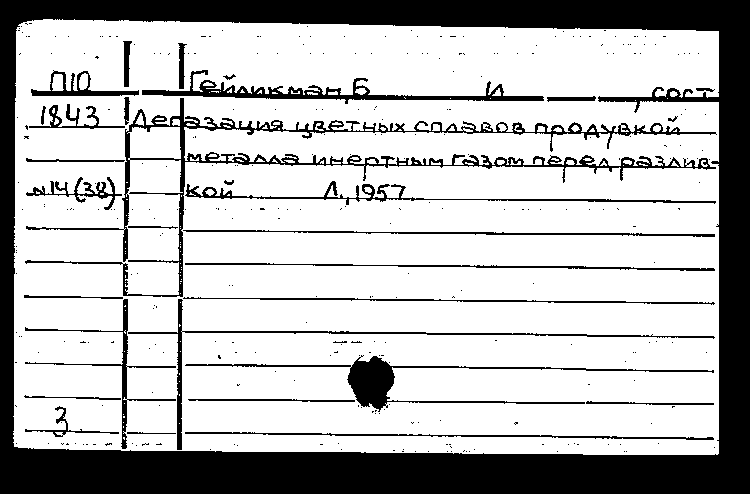 П10 Гейликман, Б И , сост
1843 Дегазация цветных сплавов продувкой
металла инертным газом перед разлив-
№14(38) кой. Л., 1957
3